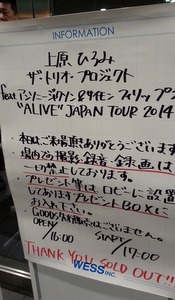 INFORMATION
上原ひろみ
ザ・トリオ・プロジェクト
feat.アンソニー・ジャクソン&サイモン・フィリップス
"ALIVE" JAPAN TOUR 2014
・本日はご来場頂きありがとうございます
・場内での撮影・録音・録画は
一切禁止しております。
・プレゼント等は ロビーに設置
してありますプレゼントBOXに
お入れ下さい。
・GOODS ございません。
OPEN START
16:00 17:00
THANK YOU SOLD OUT!!
WESS INC.